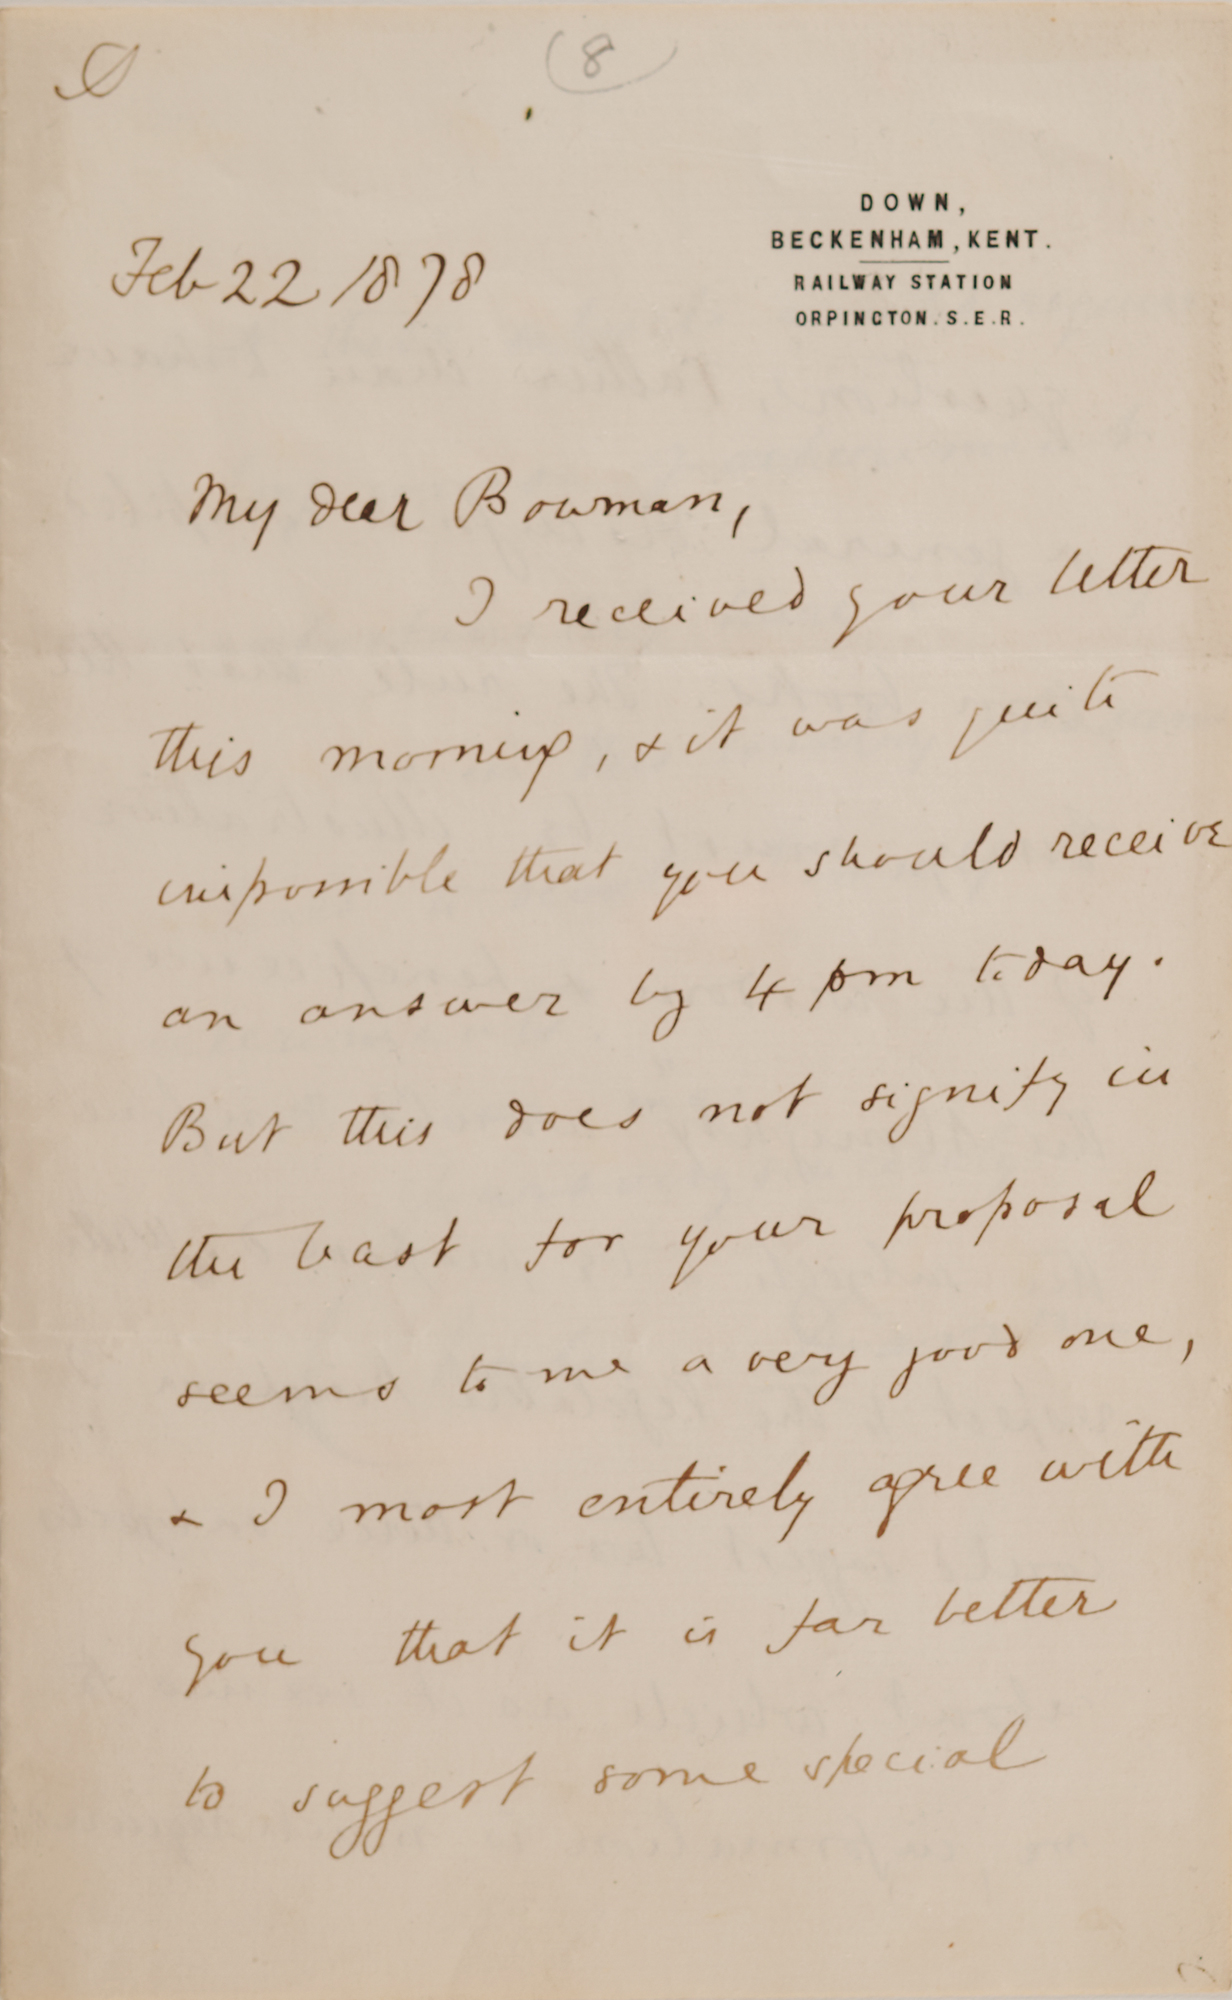 8
DOWN,
BECKENHAM, KENT.
RAILWAY STATION
ORPINGTON. S.E.R.
Feb 22 1878
My dear Bowman,
I received your letter
this morning, & it was quite
impossible that you should receive
an answer by 4 pm today.
But this does not signify in
the least for your proposal
seems to me a very good one,
& I most entirely agree with
you that it is far better
to suggest some special